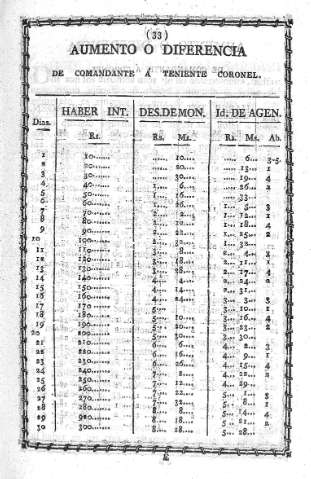 (33)
AUMENTO O DIFERENCIA
DE COMANDANTE Á TENIENTE CORONEL.
HABER INT. DES.DE MON. Id. DE AGEN.
Dias.
Rs. Rs. Ms. Rs. Ms. Ab.
1 10....... ..... 10.... ..... 6... 3-5.
2 20....... ..... 20.... ..... 13... 1
3 30....... ..... 30.... ..... 19... 4
4 40....... 1... 6.... ..... 26... 2
5 50....... 1... 16.... ..... 33...
6 60....... 1... 26.... 1... 5... 3
7 70....... 2... 2.... 1... 12... 1
8 80....... 2... 12.... 1... 18... 4
9 90....... 2... 22.... 1... 25... 2
10 100....... 2... 32.... 1... 32...
11 110....... 3... 8.... 2... 4... 3
12 120....... 3... 18.... 2... 11... 1
13 130....... 3... 28.... 2... 17... 4
14 140....... 4... 4.... 2... 24... 2
15 150....... 4... 14.... 2... 31...
16 160....... 4... 24.... 3... 3... 3
17 170....... 5... 3... 10... 1
18 180....... 5... 10.... 3... 16... 4
19 190....... 5... 20.... 3... 23... 2
20 200....... 5... 30.... 3... 30...
21 210....... 6... 6.... 4... 2... 3
22 220....... 6... 16.... 4... 9... 1
23 230....... 6... 26.... 4... 15... 4
24 240....... 7... 2.... 4... 22... 2
25 250....... 7... 12.... 4... 29...
26 260....... 7... 22.... 5... 1... 3
27 270....... 7... 32.... 5... 8... 1
28 280....... 8... 8.... 5... 14... 4
29 920....... 8... 18.... 5... 21... 2
30 300....... 8... 28.... 5... 28...